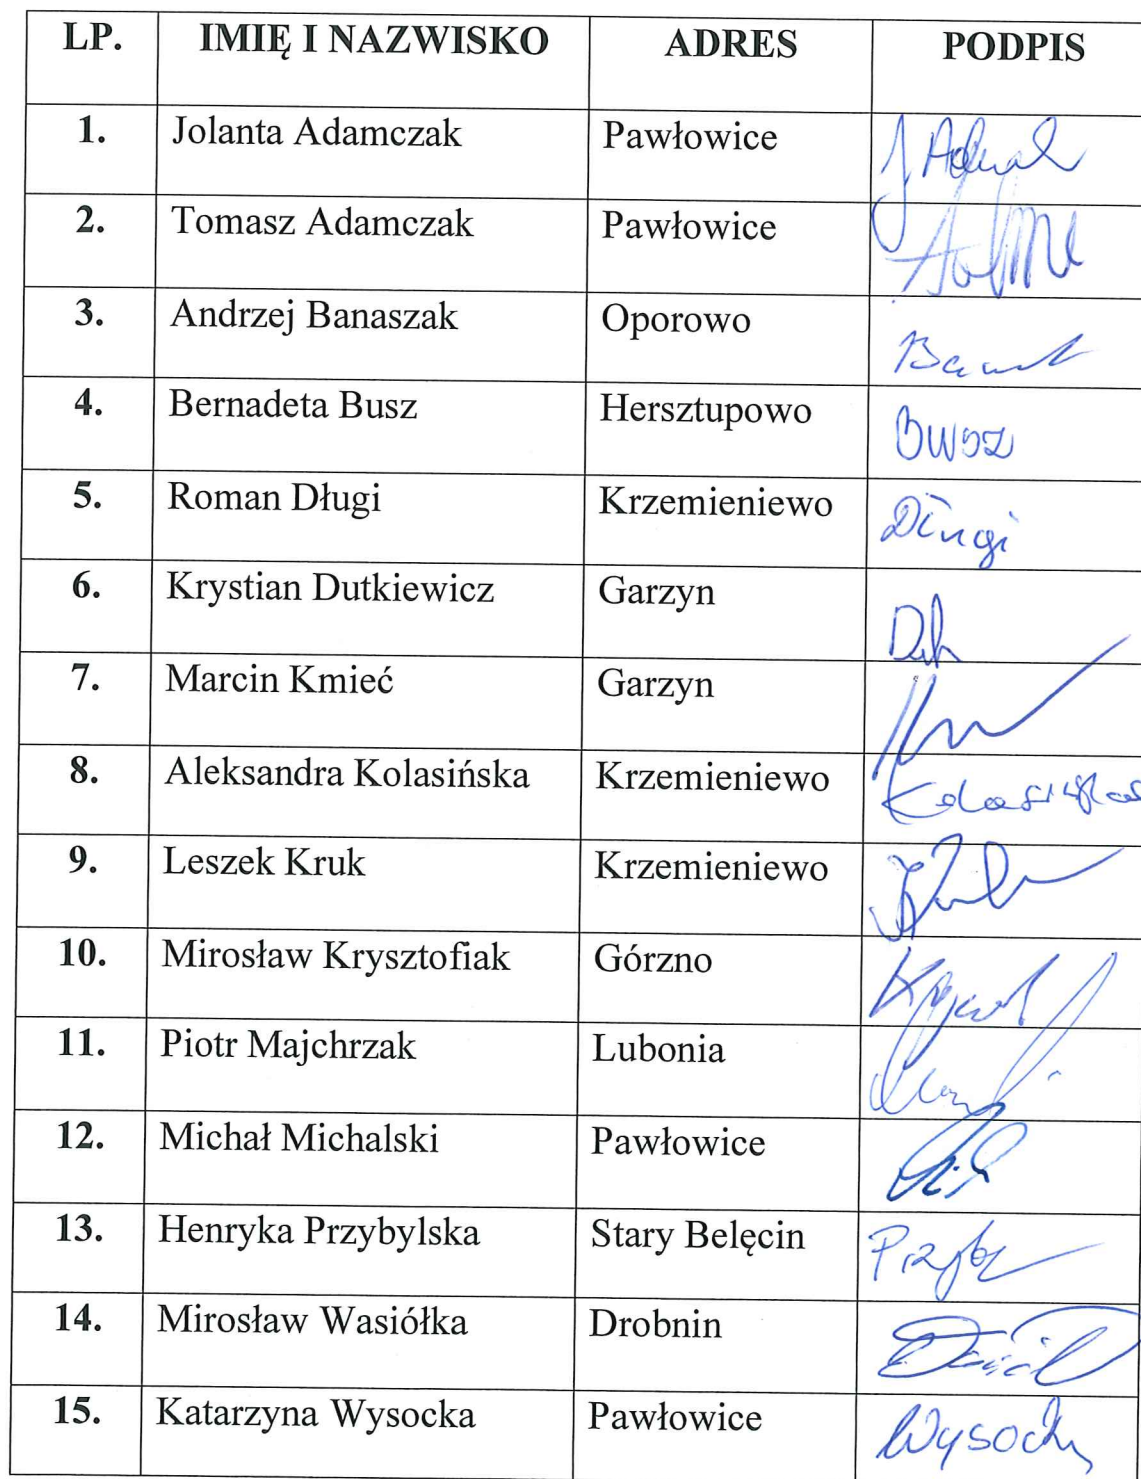 LP. IMIĘ I NAZWISKO ADRES PODPIS
1. Jolanta Adamczak Pawłowice
2. Tomasz Adamczak Pawłowice
3. Andrzej Banaszak Oporowo
4. Bernadeta Busz Hersztupowo Busz
5. Roman Długi Krzemieniewo Długi
6. Krystian Dutkiewicz Garzyn
7. Marcin Kmieć Garzyn
8. Aleksandra Kolasińska Krzemieniewo Kolasińska
9. Leszek Kruk Krzemieniewo
10. Mirosław Krysztofiak Górzno
11. Piotr Majchrzak Lubonia
12. Michał Michalski Pawłowice
13. Henryka Przybylska Stary Belęcin
14. Mirosław Wasiółka Drobnin
15. Katarzyna Wysocka Pawłowice Wysocka